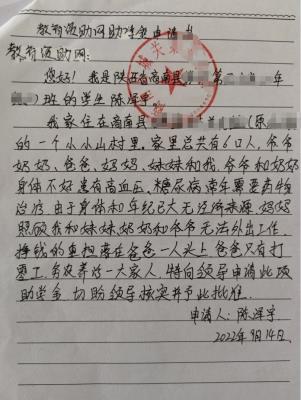 教育资助网助学金申请书
教育资助网:
您好!我是陕西省商南县 年
班的学生陈泽宇
我家住在商南县
的一个小山村里。家里总共有6口人,爷爷
奶奶、爸爸、妈妈、妹妹和我,爷爷和奶奶
身体不好患有高血压、糖尿病常年需要药物
治疗。由于身体和年纪已大无经济来源,妈妈
照顾我和妹妹奶奶和爷爷无法外出工作,
挣钱的重担落在爸爸一人头上,爸爸只有打
零工,养活一大家人,特向领导申请此项
助学金,切盼领导核实并予此批准。
申请人:陈泽宇
2022年9月14日